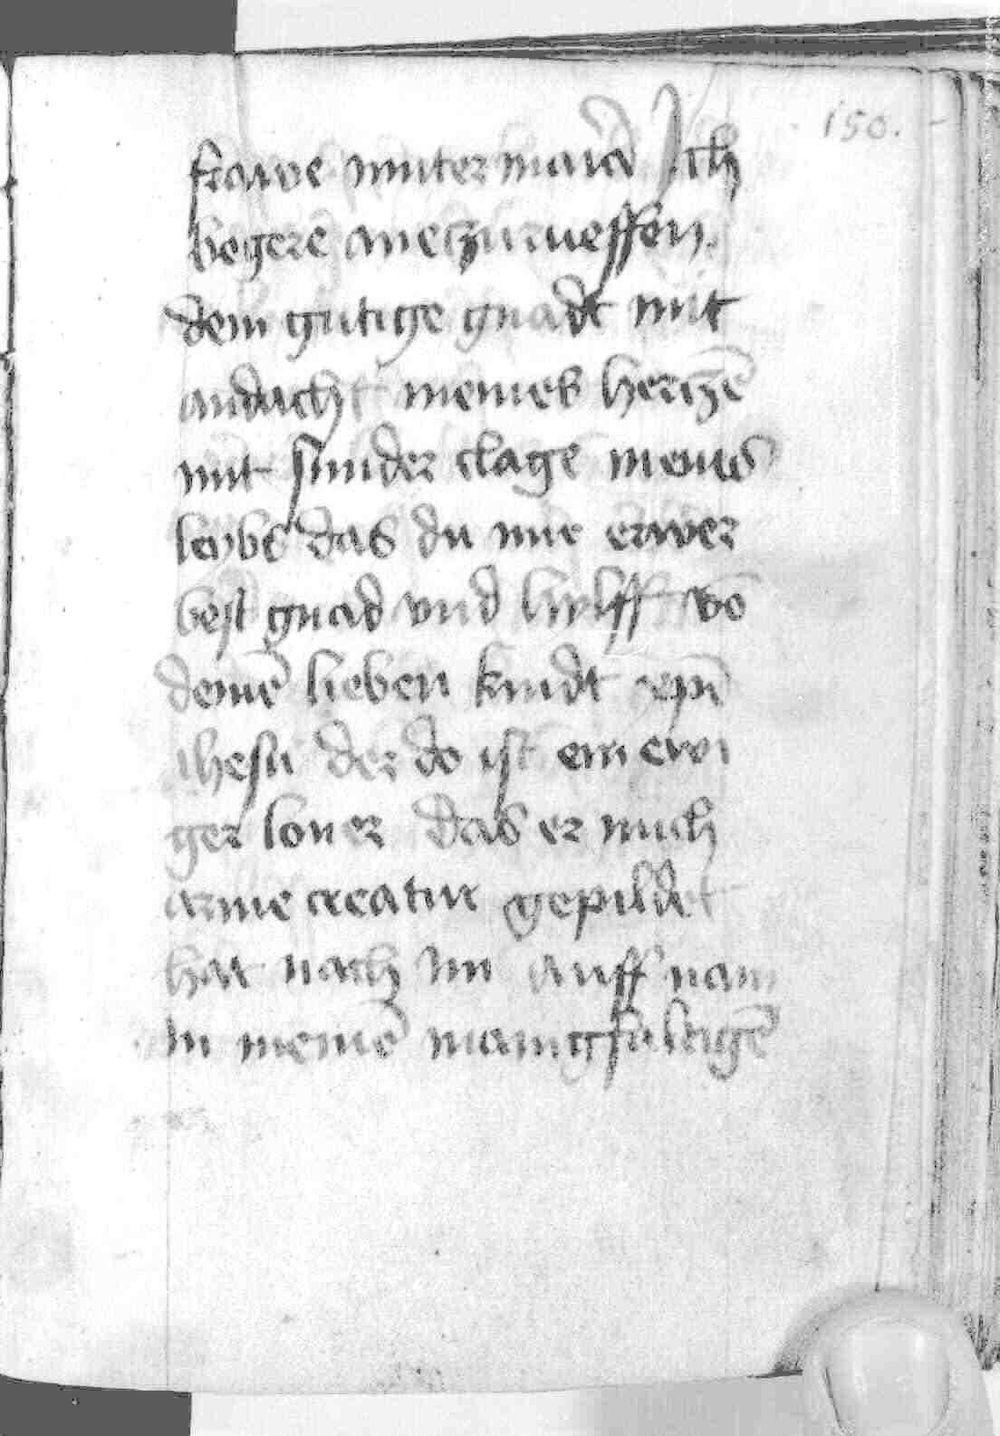 150.
frawe muter maria Ich
begere anetzurueffen
dein gutige gnadt mit
andacht meines hertzē
mit sunder clage meins
leybs das du mir erwer
best gnad vnd hulff vō
deinē lieben kindt xpē
ihesu der do ist ein ewi
ger loner das er mich
arme creatur gepildet
hat nach im auff nam
in meinē manigfaltigē